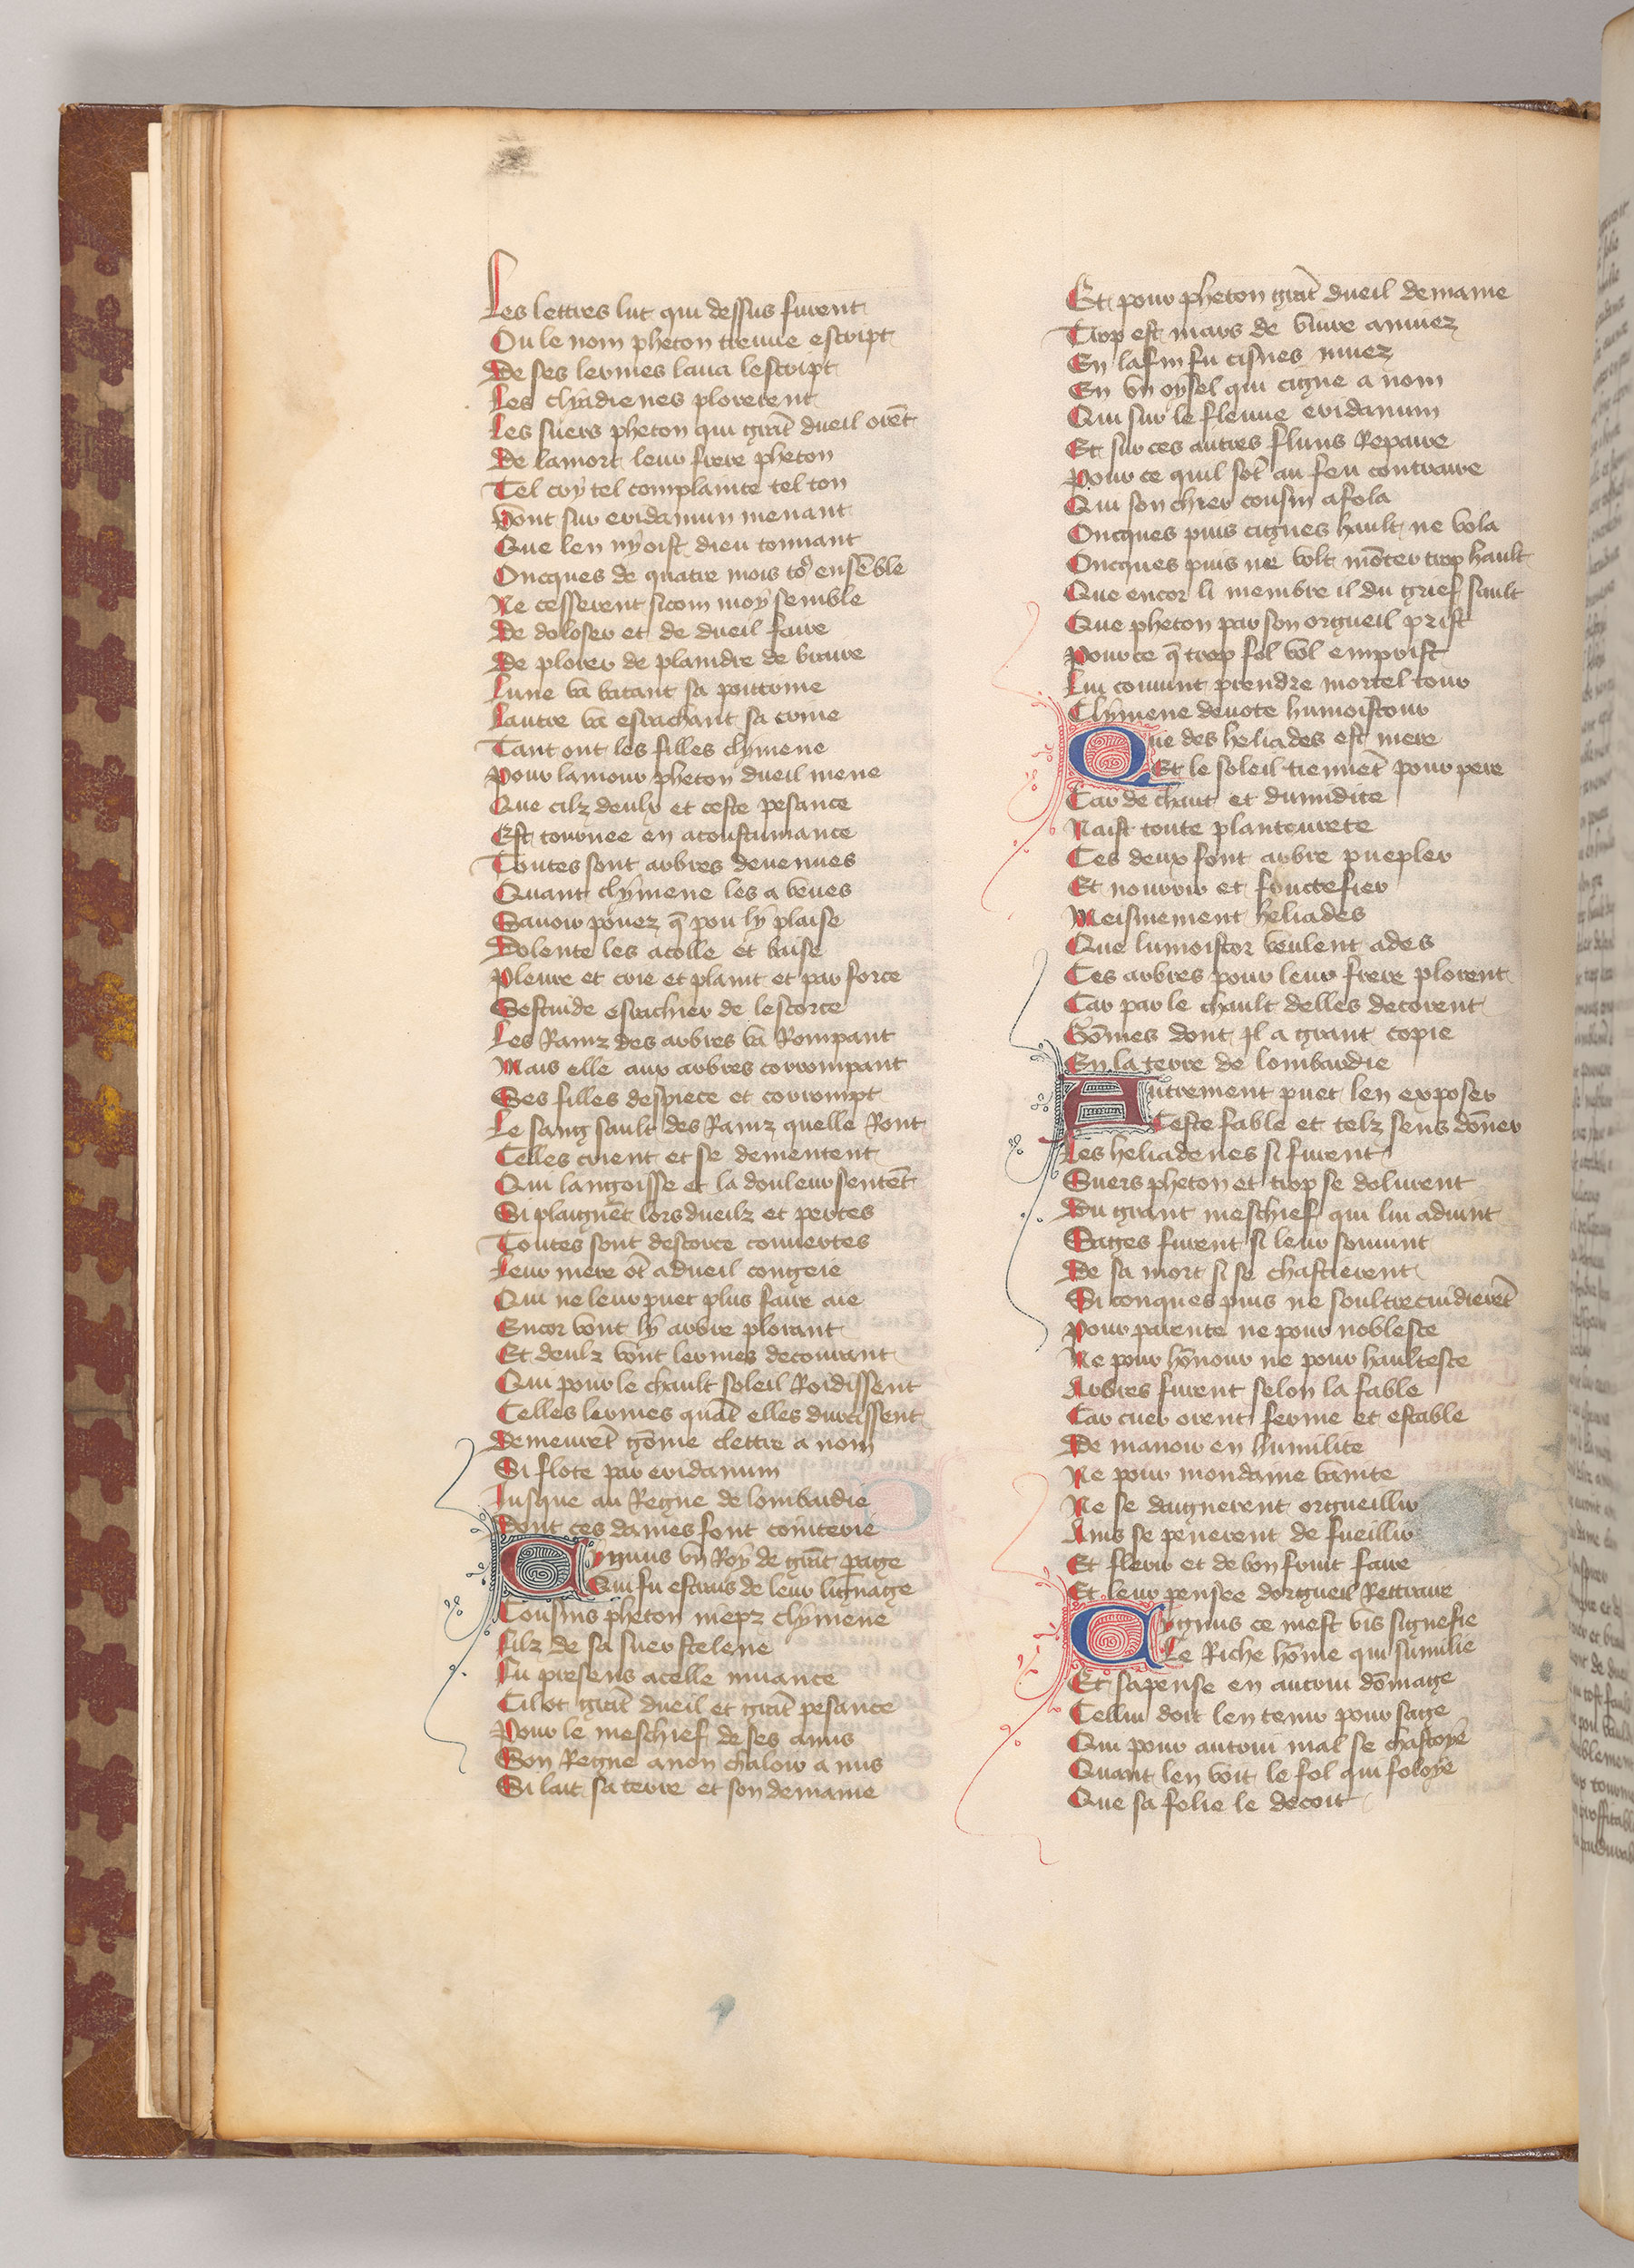 Les lettres lut qui dessus furent
Ou le nom pheton treuue escript
De ses lermes laua lescript
Les elyadienes plorerent
Les suers pheton qui grāt dueil orēt
De lamort leur frere pheton
Tel cry tel complainte tel ton
Vont sur eridanum menant
Que len ny oist dieu tonnant
Oncques de quatre mois to9 ensēble
Ne cesserent sicom moy semble
De doloser et de dueil faire
De plorer de plaindre de braire
Lune va batant sa poittrine
Lautre va esrachant sa crine
Tant ont les filles clymene
Pour lamour pheton dueil mene
Que cilz deulx et ceste pesance
Est tournee en acoustumance
Toutes sont arbres deuenues
Quant clymene les a veues
Sauoir pouez q̄ pou ly plaise
Dolente les acolle et baise
Pleure et crie et plaint et par force
Sestuide esrachier de lescorce
Les Rainz des arbres va Rompant
Mais elle aux arbres corrompant
Ses filles despiece et corrompt
Le sang sault des Rainz quelle Ront
Celles crient et se dementent
Qui langoisse et la douleur sentēt
Si plaignēt lors dueilz et pertes
Toutes sont descorce couuertes
Leur mere ot̄ adueil congeie
Qui ne leur puet plus faire aie
Encor vont ly arbre plorant
Et deulz vont lermes decourant
Qui pour le chault soleil Roidissent
Celles lermes quāt elles durcissent
Demeurēt gōme elettre a nom
Si flote par eridanum
Iusque au Regne de lombardie
Dont ces dames font cointerie
Cygnus vn Roy de grāt parage
Qui fu estrais de leur lignage
Cousins pheton niepz clymene
Filz de sa suer stelene
Fu presens acelle muance
Cil ot grāt dueil et grāt pesance
Pour le meschief de ses amis
Son Regne anon chaloir a mis
Si lait sa terre et son demaine
Et pour pheton grāt dueil demaine
Trop est mars de viure annuez
En lafin fu cisnes muez
En vn oysel qui cigne a nom
Qui sur le fleuue eridanum
Et sur ces autres fluns Repaire
Pour ce quil sot̄ au feu contraire
Qui son chier cousin afola
Oncques puis cignes hault ne vola
Oncques puis ne volt mōter trop hault
Que encor li membre il du grief sault
Que pheton par son orgueil prist
Pource q̄ trop fol vol emprist
Lui conuint prendre mortel tour
Clymene denote humoistour
Que des heliades est mere
Et le soleil tiennēt pour pere
Car de chaut et dumidite
Naist toute planteurete
Ces deux font arbre puepler
Et nourrir et fructefier
Meismement heliades
Que lumoistor veulent ades
Ces arbres pour leur frere plorent
Car par le chault delles decorent
Gōmes dont il a grant copie
En la terre de lombardie
Autrement puet len exposer
Ceste fable et telz sens dōner
Les heliadenes si furent
Suers pheton et trop se dolurent
Du grant meschief qui lui aduint
Sages furent si leur souuint
De sa mort si se chastierent
Si conques puis ne soultrecuidierēt
Pour parente ne pour noblesce
Ne pour hōnour ne pour haultesce
Arbres furent selon la fable
Car cuer orent ferme et estable
De manoir en humilite
Ne pour mondaine vanite
Ne se daignerent orgueillir
Ains se penerent de fueillir
Et flerir et de bon fruit faire
Et leur pensee dorgueil Rettraire
Cygnus ce mest vis signefie
Le Riche hōme qui sumilie
Et sapense en autrui dōmage
Cellui doit len tenir pour sage
Qui pour autrui mal se chastoye
Quant len voit le fol qui foloye
Que sa folie le decoit